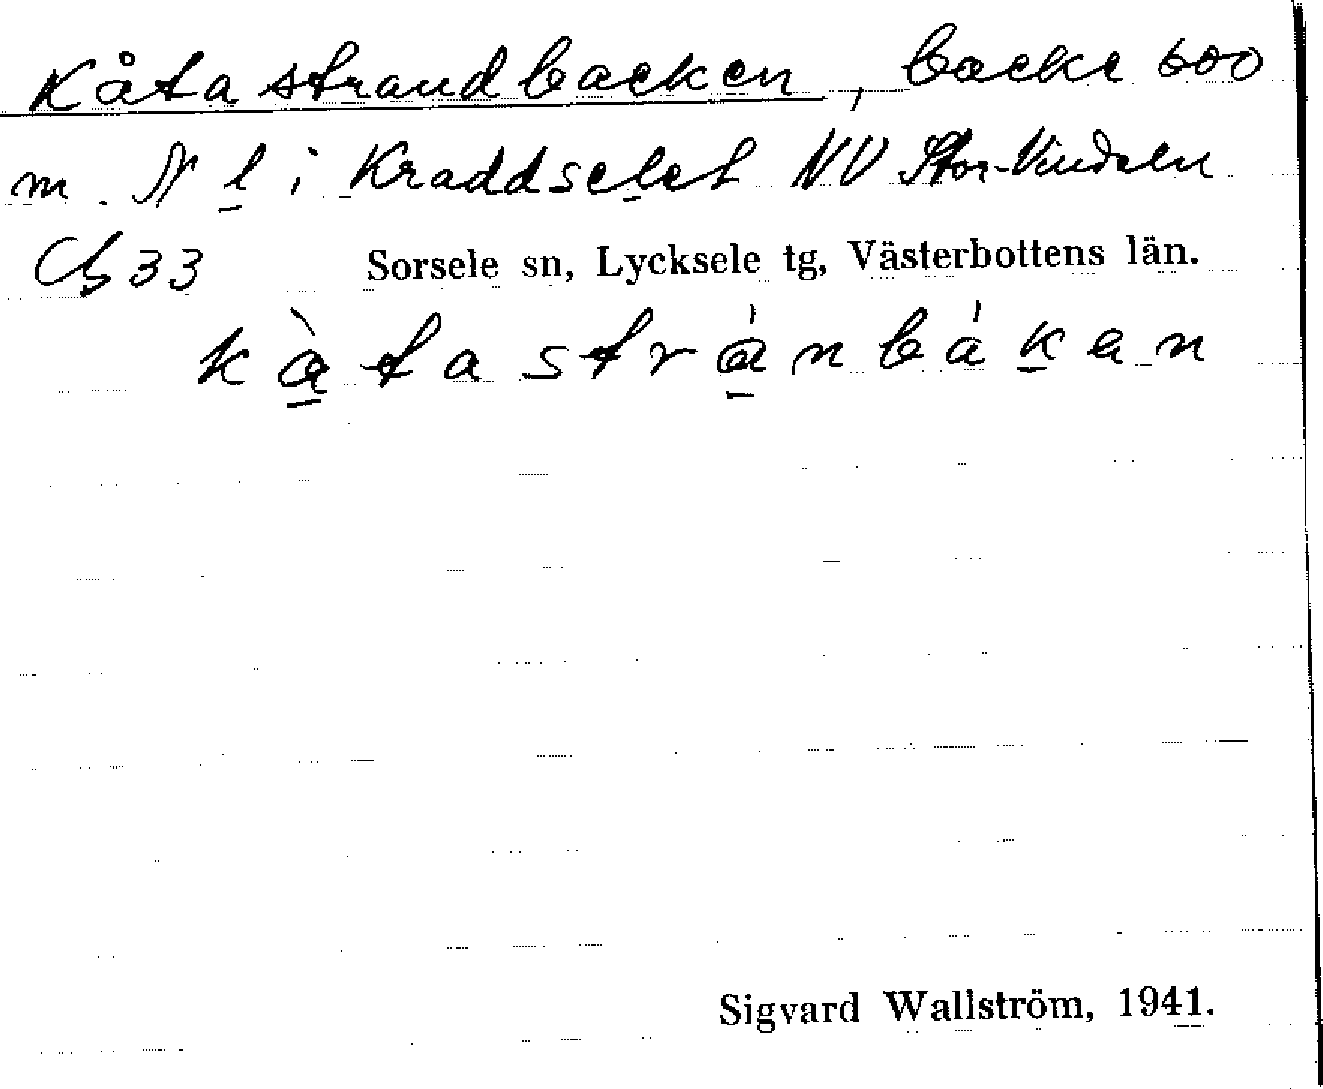 Kåtastrandbacken, backe 600
m. N l i Kraddselet NV Stor-Vindeln
Cb 33 Sorsele sn, Lycksele tg, Västerbottens län.
kàtastránbákan
Sigvard Wallström, 1941.